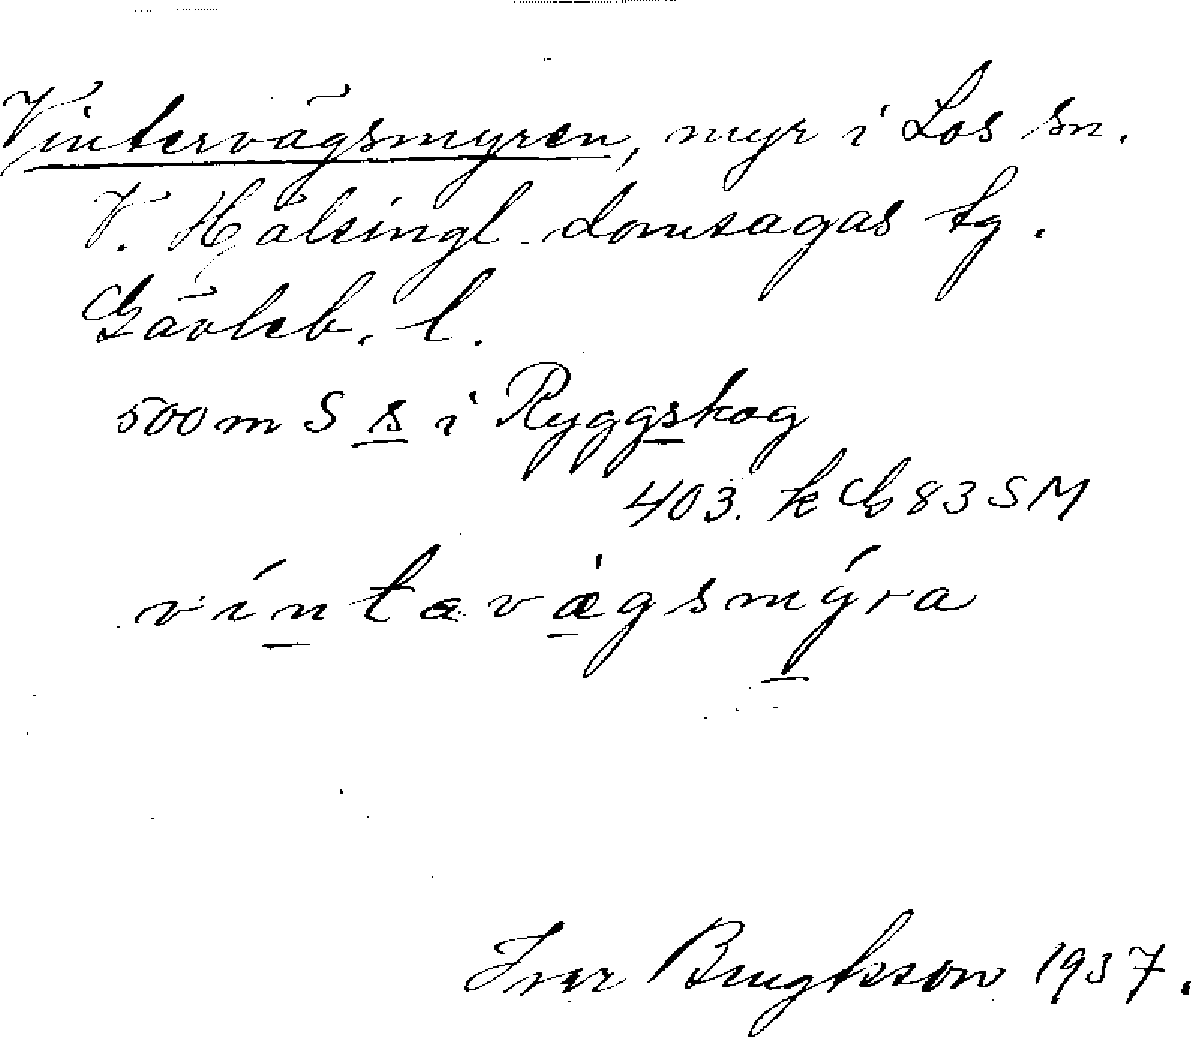 Vintervägsmyren, myr i Los sn.
V. Hälsingl. domsagas tg.
Gävleb. l.
500 m S s i Ryggskog
403. k Cb 83 SM
víntavægsmýra
Ivar Bengtsson 1937.